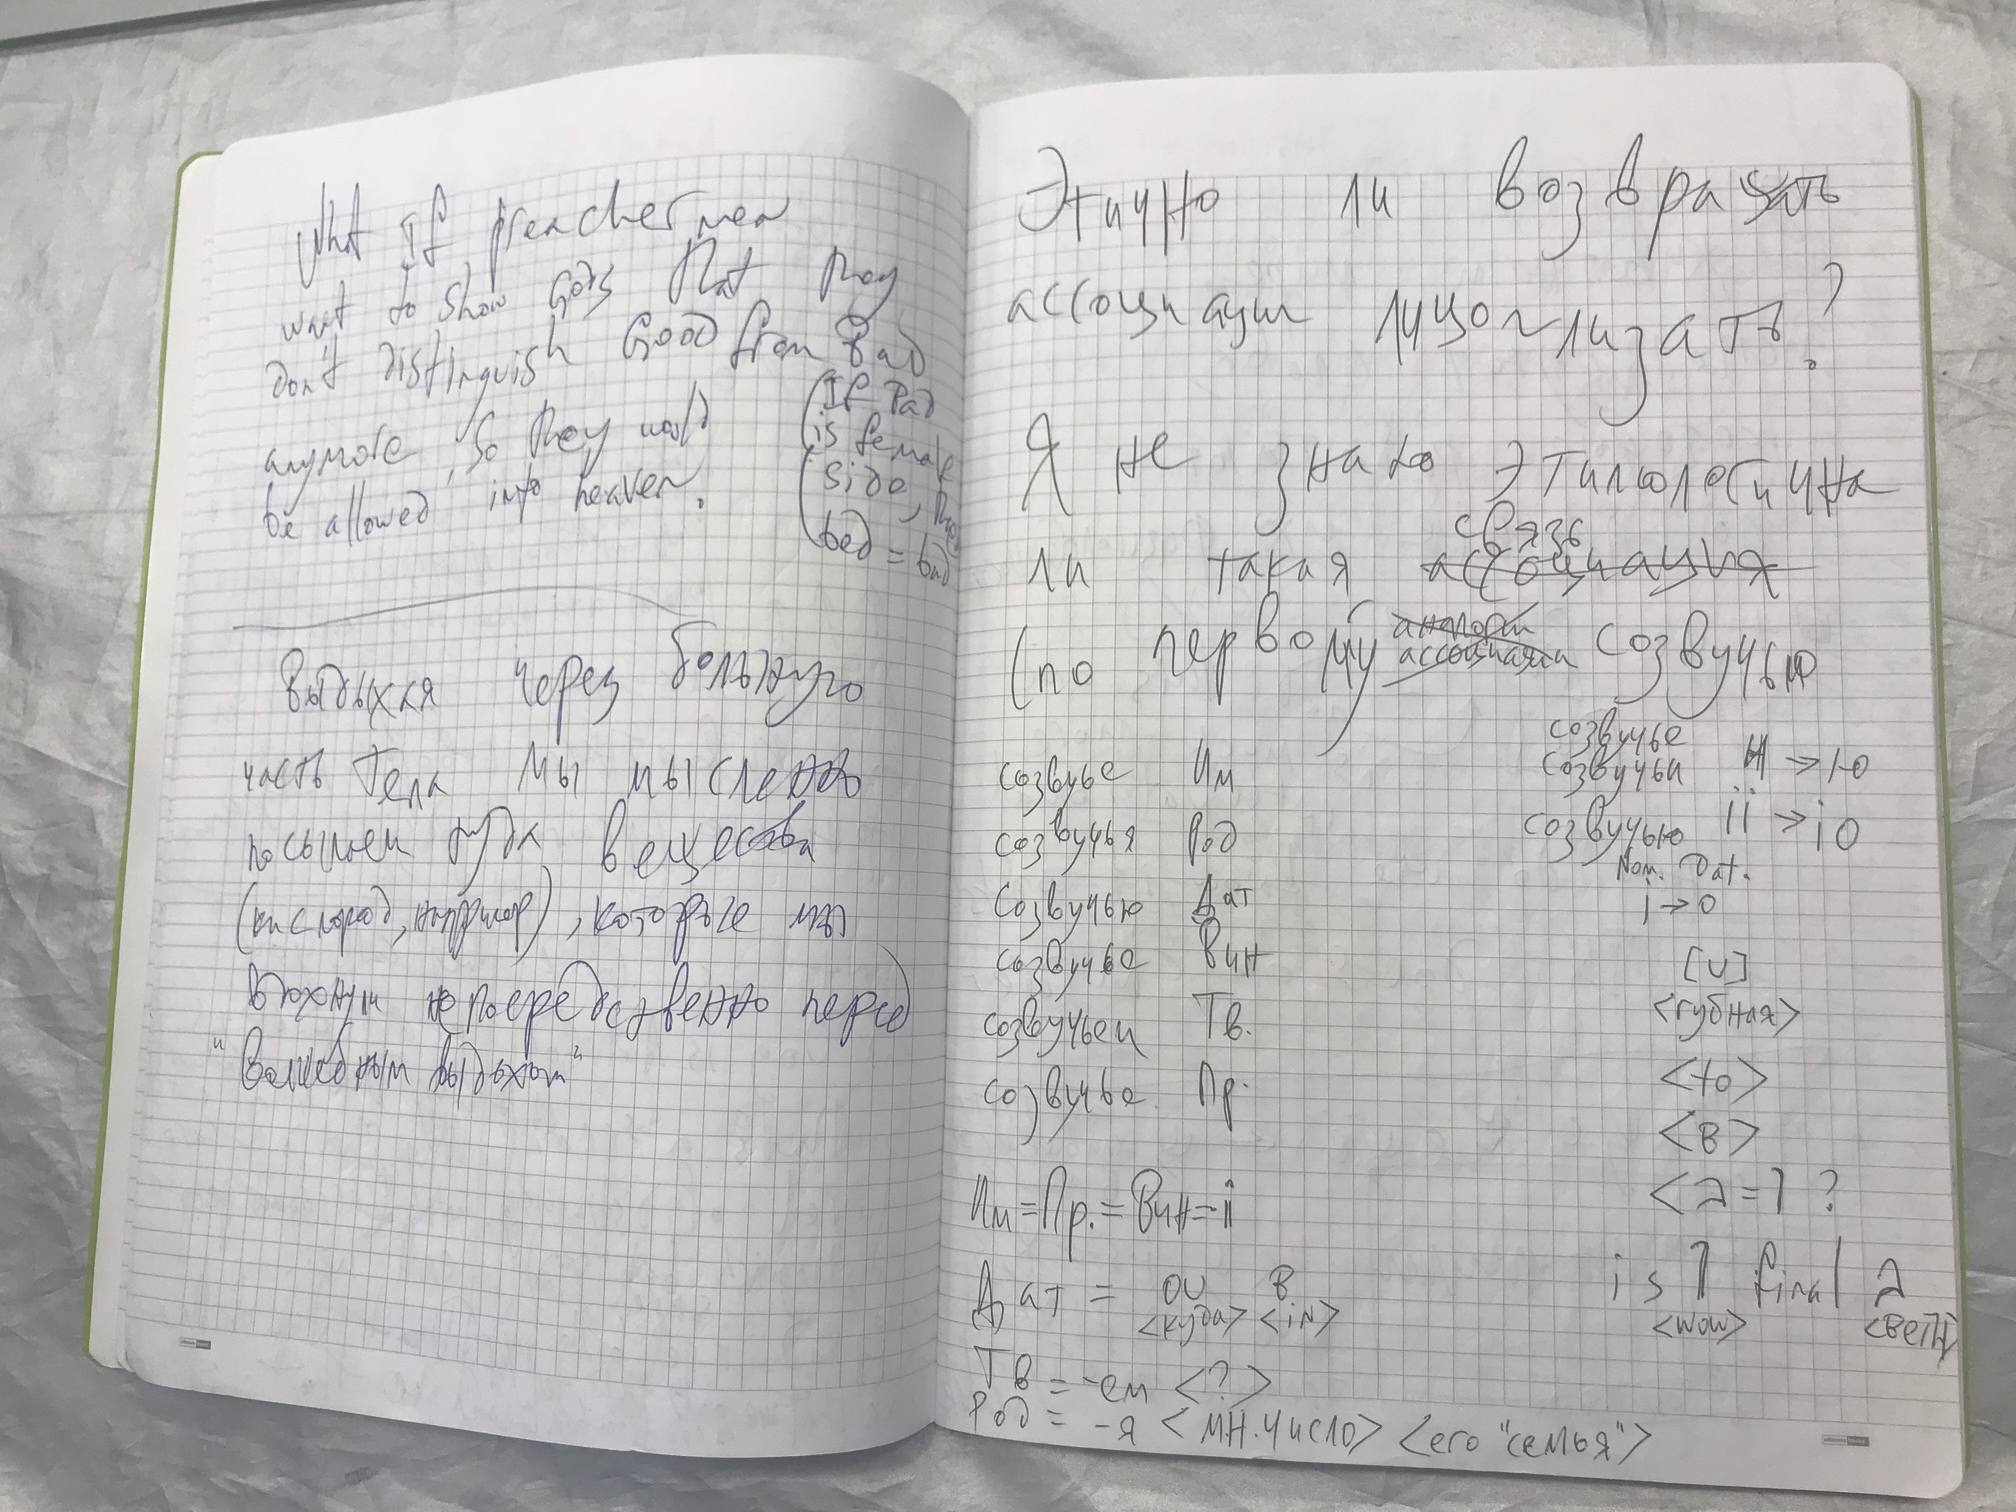 What If preachermen
want to show Gods that they
don't distinguish Good from Bad
anymore, so they would
be allowed into heaven.
(If Bad
is female
side, then
bed = bad
Выдыхая через больную
часть тела мы мысленно
посылаем туда вещества
(кислород, например), которые мы
вдохнули непосредственно перед
"волшебным выдохом"
Этично ли возвращать
ассоциации
Я не знаю этимологична
связь
ли такая ассоциация
(по первому созвучью
ассоциации
созвучье Им
созвучья Род
созвучью Дат
созвучье Вин
созвучьем Тв.
созвучье Пр.
созвучье
созвучьи И → Ю
созвучью ii → io
Nom. Dat.
i → o
[U]
<губная>
<to>
<в>
<2=1 ?
is 1 final 2
<wow>
Им = Пр. = Вин = -ii
Дат = ou в
<куда> <in>
Тв = -ем <?>
Род = -я <мн. число> <его "семья">